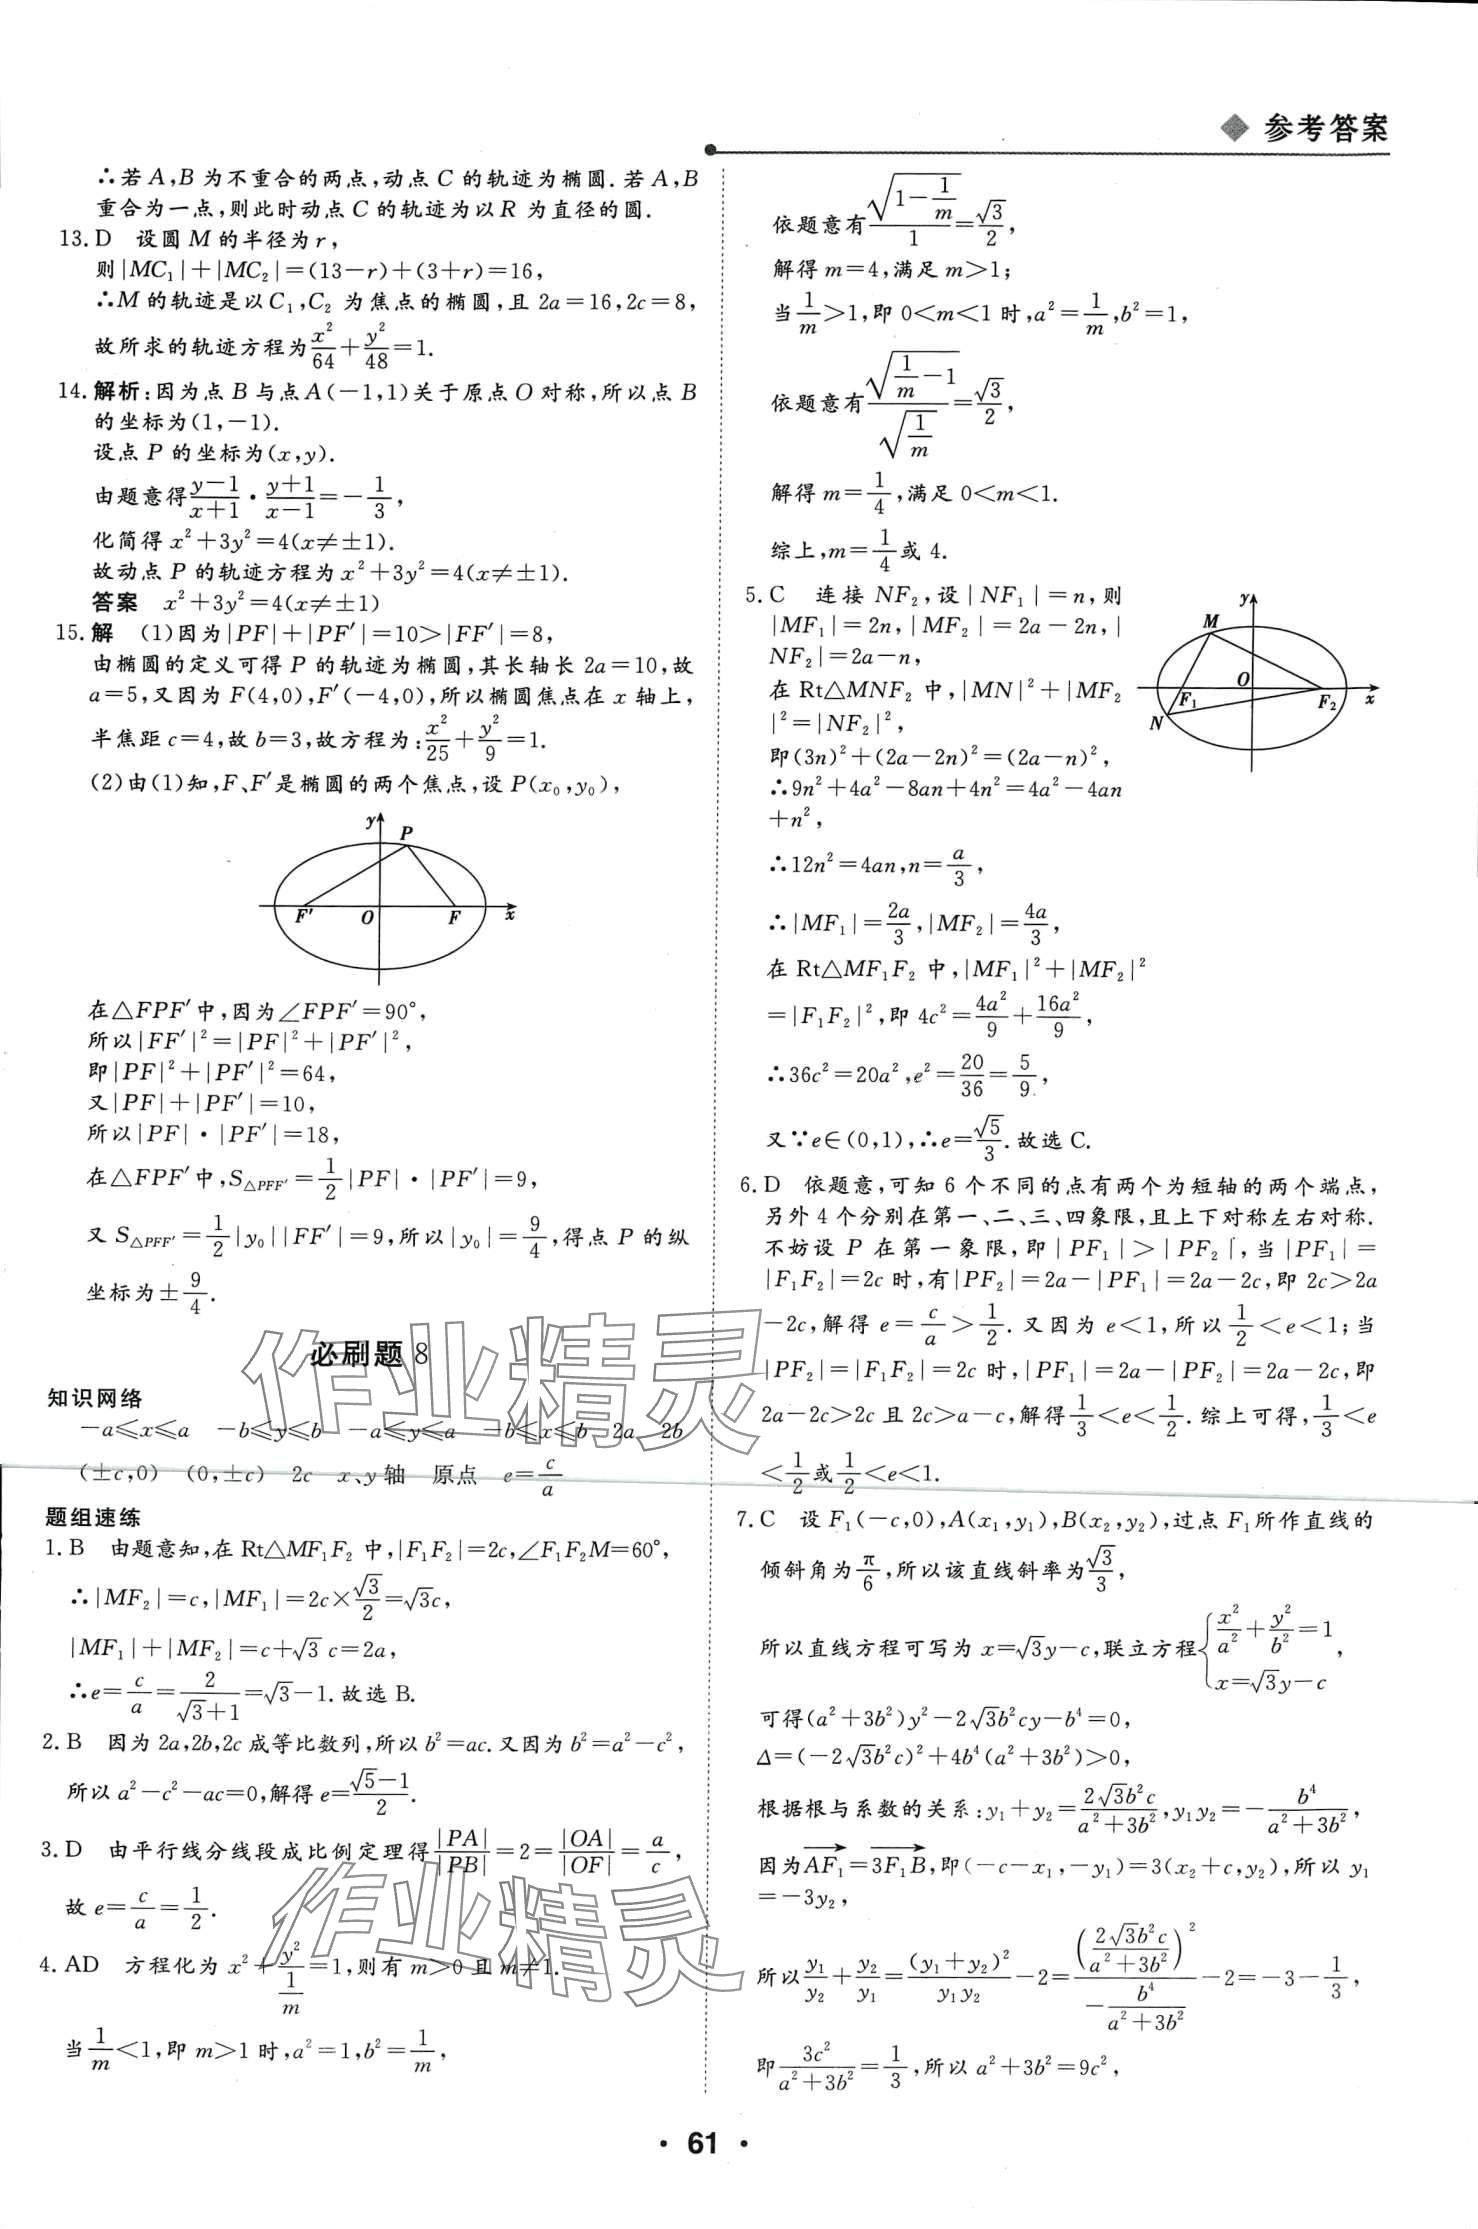 参考答案
∴若A,B为不重合的两点,动点C的轨迹为椭圆.若A,B
重合为一点,则此时动点C的轨迹为以R为直径的圆.
13. D 设圆M的半径为r,
则|MC₁|+|MC₂|=(13-r)+(3+r)=16,
∴M的轨迹是以C₁,C₂为焦点的椭圆,且2a=16,2c=8,
故所求的轨迹方程为x²/64+y²/48=1.
14. 解析:因为点B与点A(-1,1)关于原点O对称,所以点B
的坐标为(1,-1).
设点P的坐标为(x,y).
由题意得(y-1)/(x+1)·(y+1)/(x-1)=-1/3,
化简得x²+3y²=4(x≠±1).
故动点P的轨迹方程为x²+3y²=4(x≠±1).
答案 x²+3y²=4(x≠±1)
15. 解 (1)因为|PF|+|PF′|=10>|FF′|=8,
由椭圆的定义可得P的轨迹为椭圆,其长轴长2a=10,故
a=5,又因为F(4,0),F′(-4,0),所以椭圆焦点在x轴上,
半焦距c=4,故b=3,故方程为:x²/25+y²/9=1.
(2)由(1)知,F、F′是椭圆的两个焦点,设P(x₀,y₀),
y P
F′ O F x
在△FPF′中,因为∠FPF′=90°,
所以|FF′|²=|PF|²+|PF′|²,
即|PF|²+|PF′|²=64,
又|PF|+|PF′|=10,
所以|PF|·|PF′|=18,
在△FPF′中,S△PFF′=1/2|PF|·|PF′|=9,
又S△PFF′=1/2|y₀||FF′|=9,所以|y₀|=9/4,得点P的纵
坐标为±9/4.
必刷题8
知识网络
-a≤x≤a -b≤y≤b -a≤y≤a -b≤x≤b 2a 2b
(±c,0) (0,±c) 2c x、y轴 原点 e=c/a
题组速练
1. B 由题意知,在Rt△MF₁F₂中,|F₁F₂|=2c,∠F₁F₂M=60°,
∴|MF₂|=c,|MF₁|=2c×√3/2=√3c,
|MF₁|+|MF₂|=c+√3 c=2a,
∴e=c/a=2/(√3+1)=√3-1.故选B.
2. B 因为2a,2b,2c成等比数列,所以b²=ac.又因为b²=a²-c²,
所以a²-c²-ac=0,解得e=(√5-1)/2.
3. D 由平行线分线段成比例定理得|PA|/|PB|=2=|OA|/|OF|=a/c,
故e=c/a=1/2.
4. AD 方程化为x²+y²/(1/m)=1,则有m>0且m≠1.
当1/m<1,即m>1时,a²=1,b²=1/m,
依题意有√(1-1/m)/1=√3/2,
解得m=4,满足m>1;
当1/m>1,即0<m<1时,a²=1/m,b²=1,
依题意有√(1/m-1)/√(1/m)=√3/2,
解得m=1/4,满足0<m<1.
综上,m=1/4或4.
5. C 连接NF₂,设|NF₁|=n,则
|MF₁|=2n,|MF₂|=2a-2n,|
NF₂|=2a-n,
在Rt△MNF₂中,|MN|²+|MF₂
|²=|NF₂|²,
即(3n)²+(2a-2n)²=(2a-n)²,
∴9n²+4a²-8an+4n²=4a²-4an
+n²,
y M
O
F₁ F₂ x
N
∴12n²=4an,n=a/3,
∴|MF₁|=2a/3,|MF₂|=4a/3,
在Rt△MF₁F₂中,|MF₁|²+|MF₂|²
=|F₁F₂|²,即4c²=4a²/9+16a²/9,
∴36c²=20a²,e²=20/36=5/9,
又∵e∈(0,1),∴e=√5/3.故选C.
6. D 依题意,可知6个不同的点有两个为短轴的两个端点,
另外4个分别在第一、二、三、四象限,且上下对称左右对称.
不妨设P在第一象限,即|PF₁|>|PF₂|,当|PF₁|=
|F₁F₂|=2c时,有|PF₂|=2a-|PF₁|=2a-2c,即2c>2a
-2c,解得e=c/a>1/2.又因为e<1,所以1/2<e<1;当
|PF₂|=|F₁F₂|=2c时,|PF₁|=2a-|PF₂|=2a-2c,即
2a-2c>2c且2c>a-c,解得1/3<e<1/2.综上可得,1/3<e
<1/2或1/2<e<1.
7. C 设F₁(-c,0),A(x₁,y₁),B(x₂,y₂),过点F₁所作直线的
倾斜角为π/6,所以该直线斜率为√3/3,
所以直线方程可写为x=√3y-c,联立方程{x²/a²+y²/b²=1, x=√3y-c,
可得(a²+3b²)y²-2√3b²cy-b⁴=0,
Δ=(-2√3b²c)²+4b⁴(a²+3b²)>0,
根据根与系数的关系:y₁+y₂=2√3b²c/(a²+3b²),y₁y₂=-b⁴/(a²+3b²),
因为AF₁=3F₁B,即(-c-x₁,-y₁)=3(x₂+c,y₂),所以y₁
=-3y₂,
所以y₁/y₂+y₂/y₁=(y₁+y₂)²/y₁y₂-2=(2√3b²c/(a²+3b²))²/(-b⁴/(a²+3b²))-2=-3-1/3,
即3c²/(a²+3b²)=1/3,所以a²+3b²=9c²,
· 61 ·
作业精灵
作业精灵